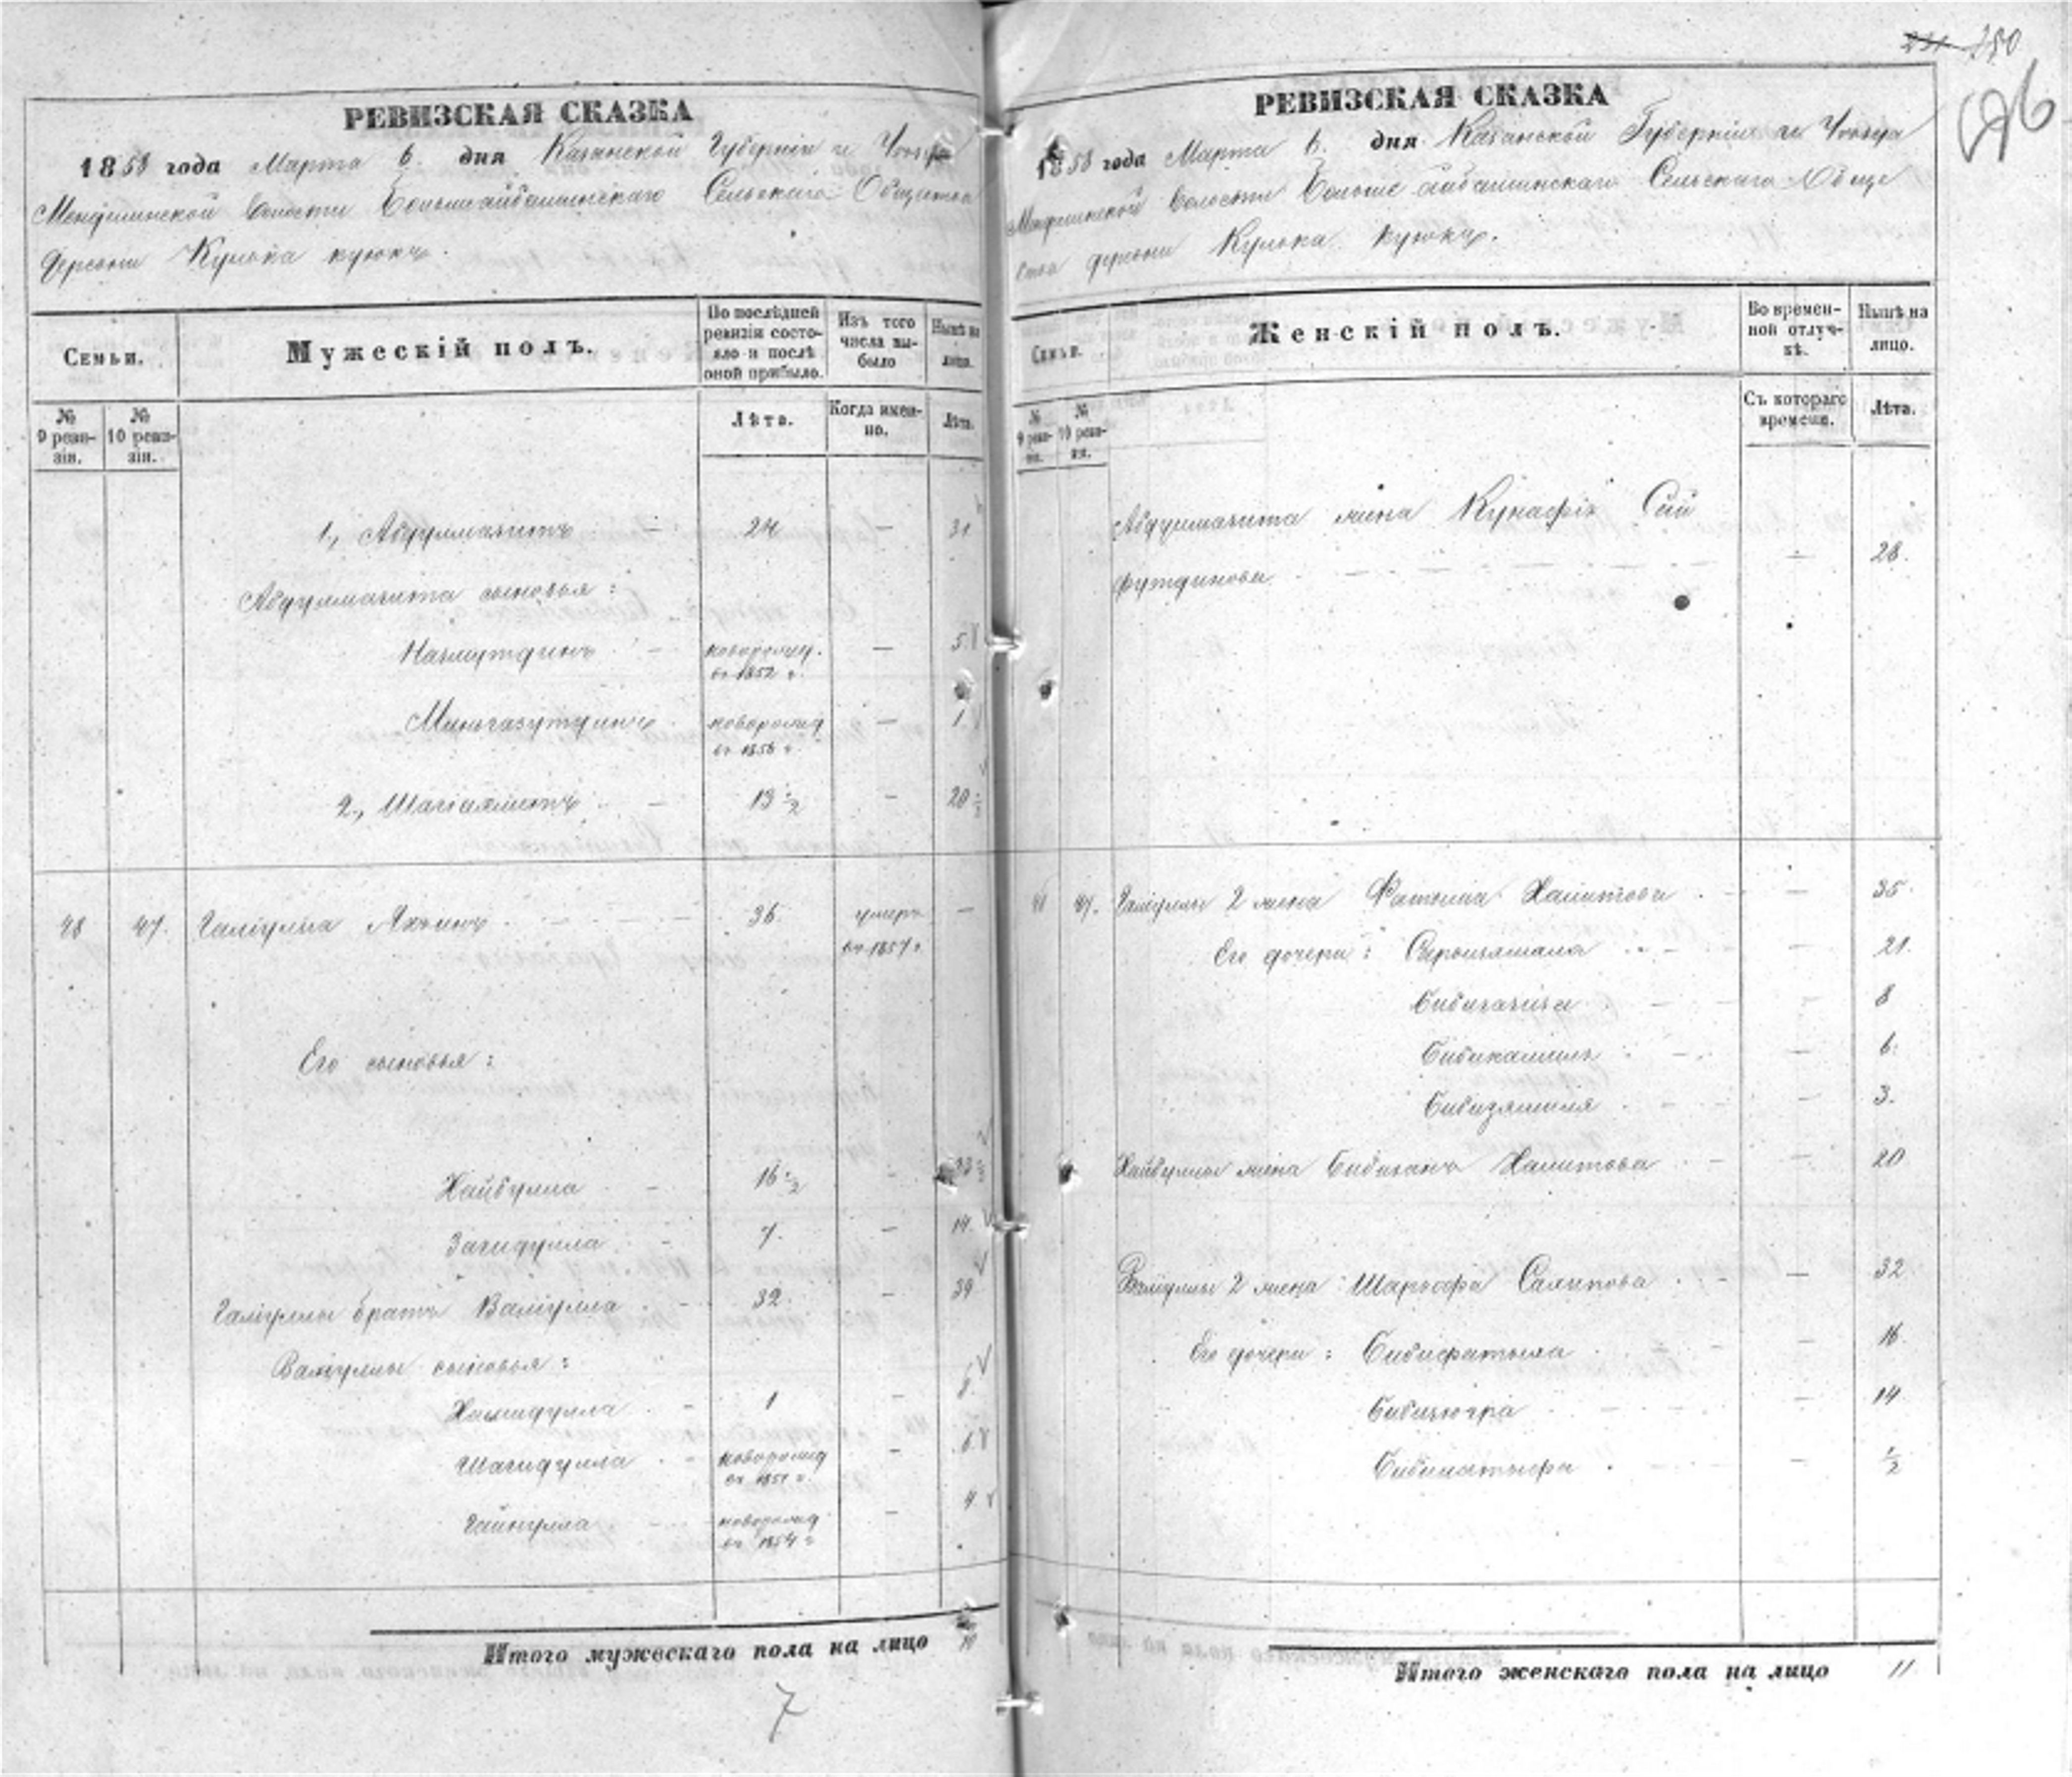 РЕВИЗСКАЯ СКАЗКА
1858 года Марта 6. дня Казанской Губерніи и Уезда
Волости Сельскаго Общества
деревни Кулька куюкъ.
Семьи.
Мужескій полъ.
По послѣдней ревизіи состояло и послѣ оной прибыло.
Изъ того числа выбыло
Нынѣ на лицо.
№ 9 ревизіи.
№ 10 ревизіи.
Лѣта.
Когда именно.
Лѣта.
1, Абдулмазитъ 24 — 31
Абдулмазита сыновья:
Назмутдинъ новорожд. въ 1852 г. — 5
Миньгазутдинъ новорожд въ 1856 г. — 1
2, 13 1/2 — 20 1/2
48 47. Галіулла 36 умеръ въ 1857 г. —
Его сыновья:
Хайбулла 16 1/2 — 23 1/2
Загидулла 7. — 14.
Галіуллы братъ Валіулла 32. — 39
Валіуллы сыновья:
Хамидулла 1 — 8
Шагидулла новорожд въ 1851 г. — 6
Гайнулла новорожд въ 1854 г — 4
Итого мужескаго пола на лицо 10
7
231 230
РЕВИЗСКАЯ СКАЗКА
1858 года Марта 6. дня Казанской Губерніи и Уезда
Волости Сельскаго Обще
ства деревни Кулька куюкъ.
Семьи.
Женскій полъ.
Во временной отлучкѣ.
Нынѣ на лицо.
№ 9 ревизіи.
№ 10 ревизіи.
Съ котораго времени.
Лѣта.
Абдулмазита жена Сей
футдинова — 28.
47. Галіуллы 2 жена Фатыма Хамитова — 35
Его дочери: — 21.
— 8
Бибикамиля — 6.
Бибизямиля — 3.
Хайбуллы жена Хамитова — 20
Валіуллы 2 жена Салихова — 32
Его дочери: Бибифатыма — 16.
Бибизюгра — 14
— 1/2
Итого женскаго пола на лицо 11